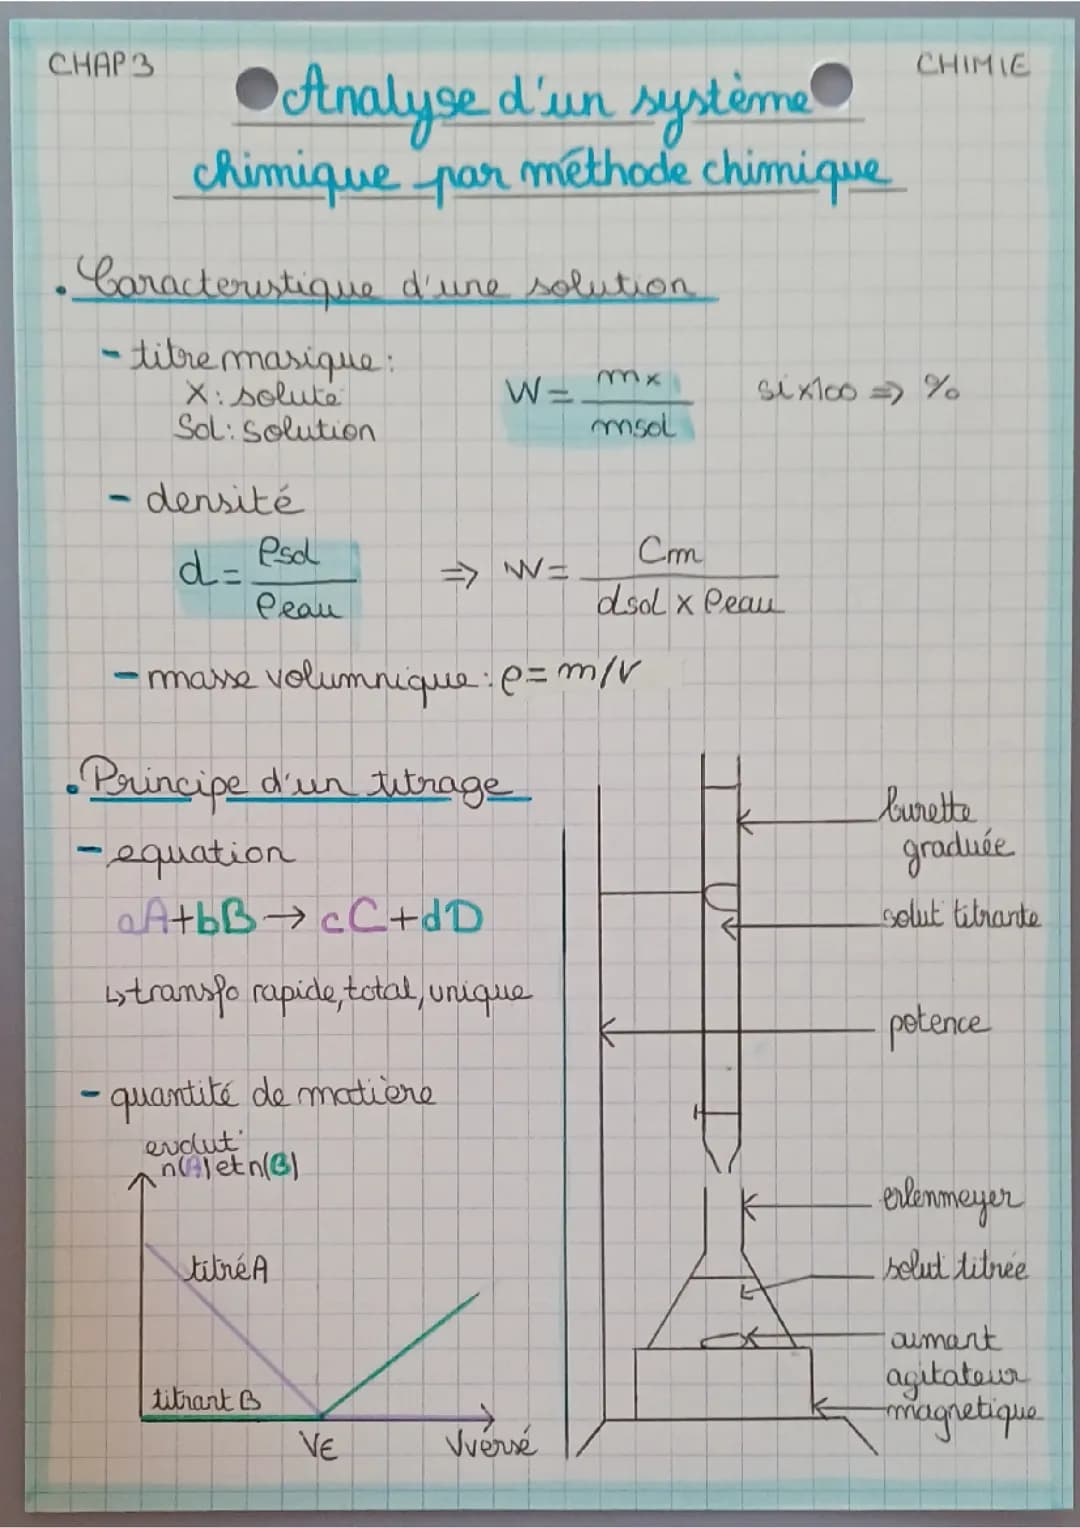 CHAP 3
CHIMIE
Analyse d'un système
chimique par méthode chimique
. Caracteristique d'une solution
- titre masique :
X : soluté
Sol : solution
W = mx / msol
si x100 => %
- densité
d = ρsol / ρeau
=> W = Cm / dsol x ρeau
- masse volumnique : ρ = m/V
. Principe d'un titrage
- equation
aA + bB → cC + dD
↳ transfo rapide, total, unique
- quantité de matière
evolut°
n(A) et n(B)
titré A
titrant B
VE
Vversé
burette
graduée
solut° titrante
potence
erlenmeyer
solut° titrée
aimant
agitateur
magnetique